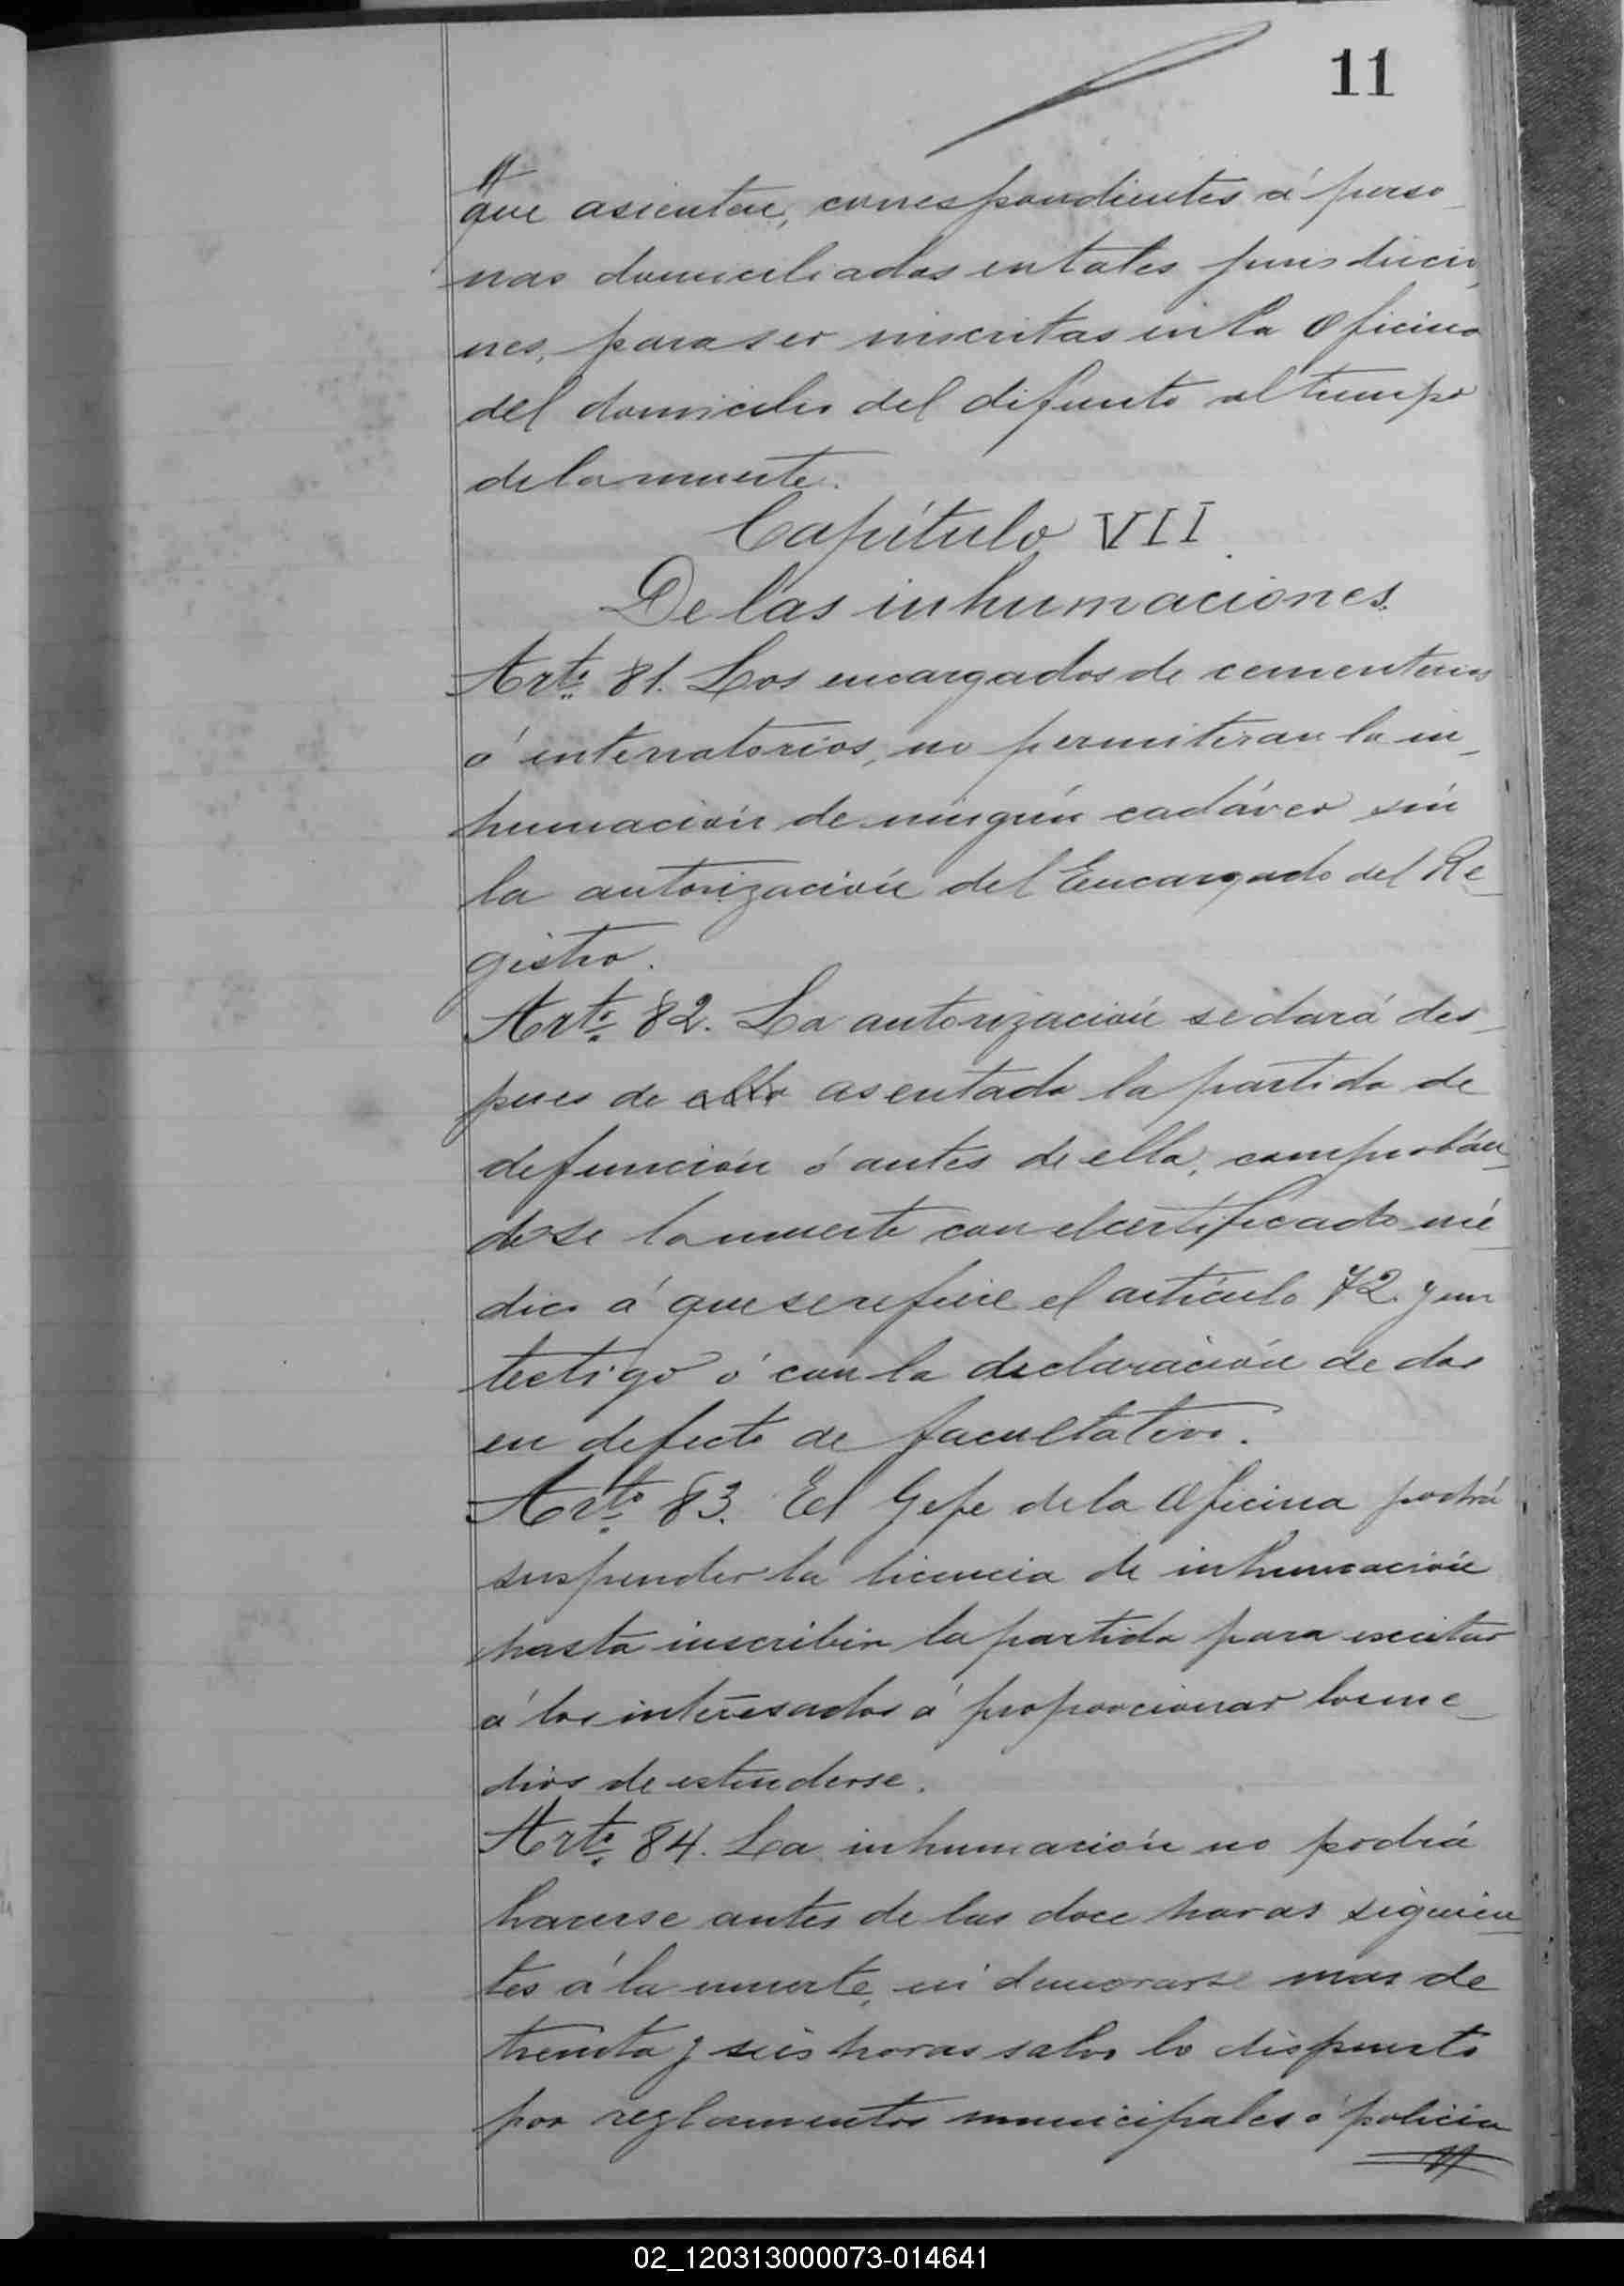 11
que asienten, correspondientes á perso_
nas domiciliadas en tales jurisdiccio_
nes, para ser inscritas en la Oficina
del domicilio del difunto al tiempo
de la muerte.
Capítulo VII
De las inhumaciones.
Arto. 81. Los encargados de cementerios
ó enterratorios, no permitiran la in_
humación de ningún cadáver sin
la autorización del Encargado del Re_
gistro.
Arto. 82. La autorización se dará des_
pues de ella asentada la partida de
defunción ó antes de ella, comprobán_
dose la muerte con el certificado mé_
dico á que se refiere el artículo 72 y un
testigo ó con la declaración de dos
en defecto de facultativo.
Arto. 83. El Gefe de la Oficina podrá
suspender la licencia de inhumación
hasta inscribir la partida para escitar
á los interesados á proporcionar los me_
dios de estenderse.
Arto. 84. La inhumación no podrá
hacerse antes de las doce horas siguien_
tes á la muerte, ni demorarse mas de
treinta y seis horas salvo lo dispuesto
por reglamentos municipales ó policia
02_120313000073-014641